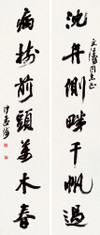 文濤同志正
沈舟側畔千帆過
病樹前頭萬木春